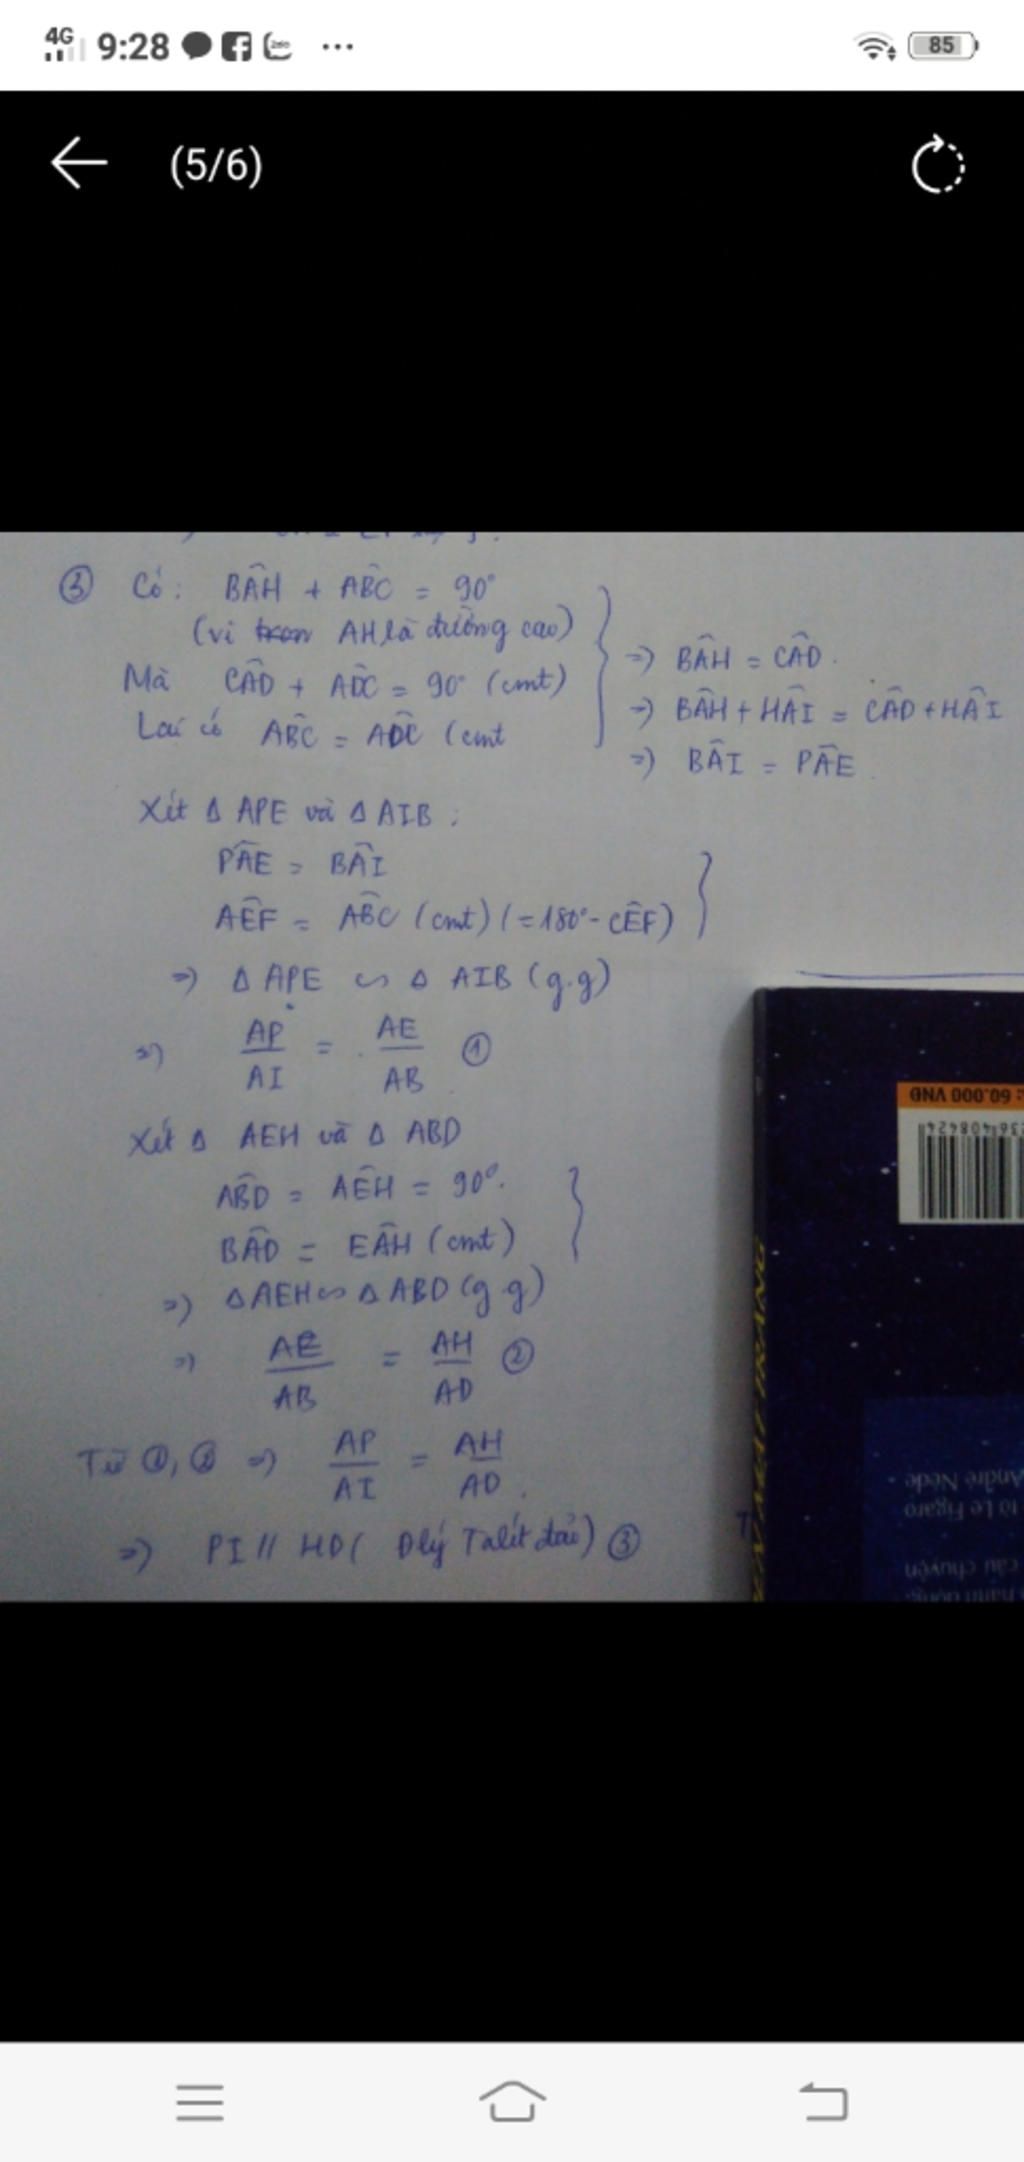 4G 9:28 ... 85
(5/6)
③ Có: BÂH + AB̂C = 90°
(vì AH là đường cao)
Mà CÂD + AD̂C = 90° (cmt)
Lại có AB̂C = AD̂C (cmt
=> BÂH = CÂD.
=> BÂH + HÂI = CÂD + HÂI
=> BÂI = PÂE
Xét Δ APE và Δ AIB :
PÂE = BÂI
AÊF = AB̂C (cmt) (=180° - CÊF)
=> Δ APE ∽ Δ AIB (g.g)
=> AP/AI = AE/AB ①
Xét Δ AEH và Δ ABD
AB̂D = AÊH = 90°.
BÂD = EÂH (cmt)
=> ΔAEH ∽ Δ ABD (g g)
=> AE/AB = AH/AD ②
Từ ①, ② => AP/AI = AH/AD.
=> PI // HD ( Đlý Talét đảo) ③
60.000 VNĐ
André Nède
tờ Le Figaro
câu chuyện